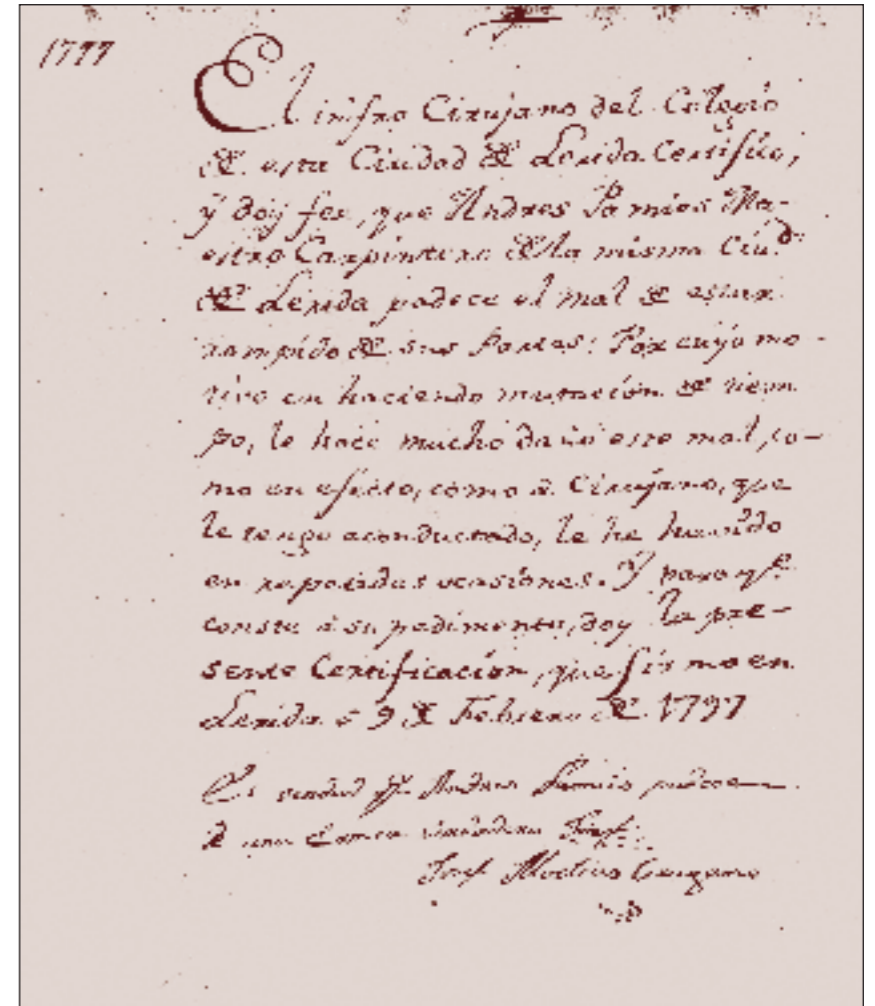 1777
El infro Cirujano del Colegio
de esta Ciudad de Lerida Certifico,
y doy fee, que Andres Pamies Ma-
estro Carpintero de la misma Ciu.d
de Lerida padece el mal de estar
rompido de sus partes: Por cuyo mo-
tivo en haciendo mutacion de tiem
po, le hace mucho daño este mal, co-
mo en efecto, como à Cirujano, que
le tengo aconductado, le he
en repetidas ocasiones. Y para q.e
conste à su pedimento, doy la pre-
sente Certificacion, que firmo en
Lerida à 9 de Febrero de 1797
Es verdad q.e Andres Pamies padece
de una
Josef